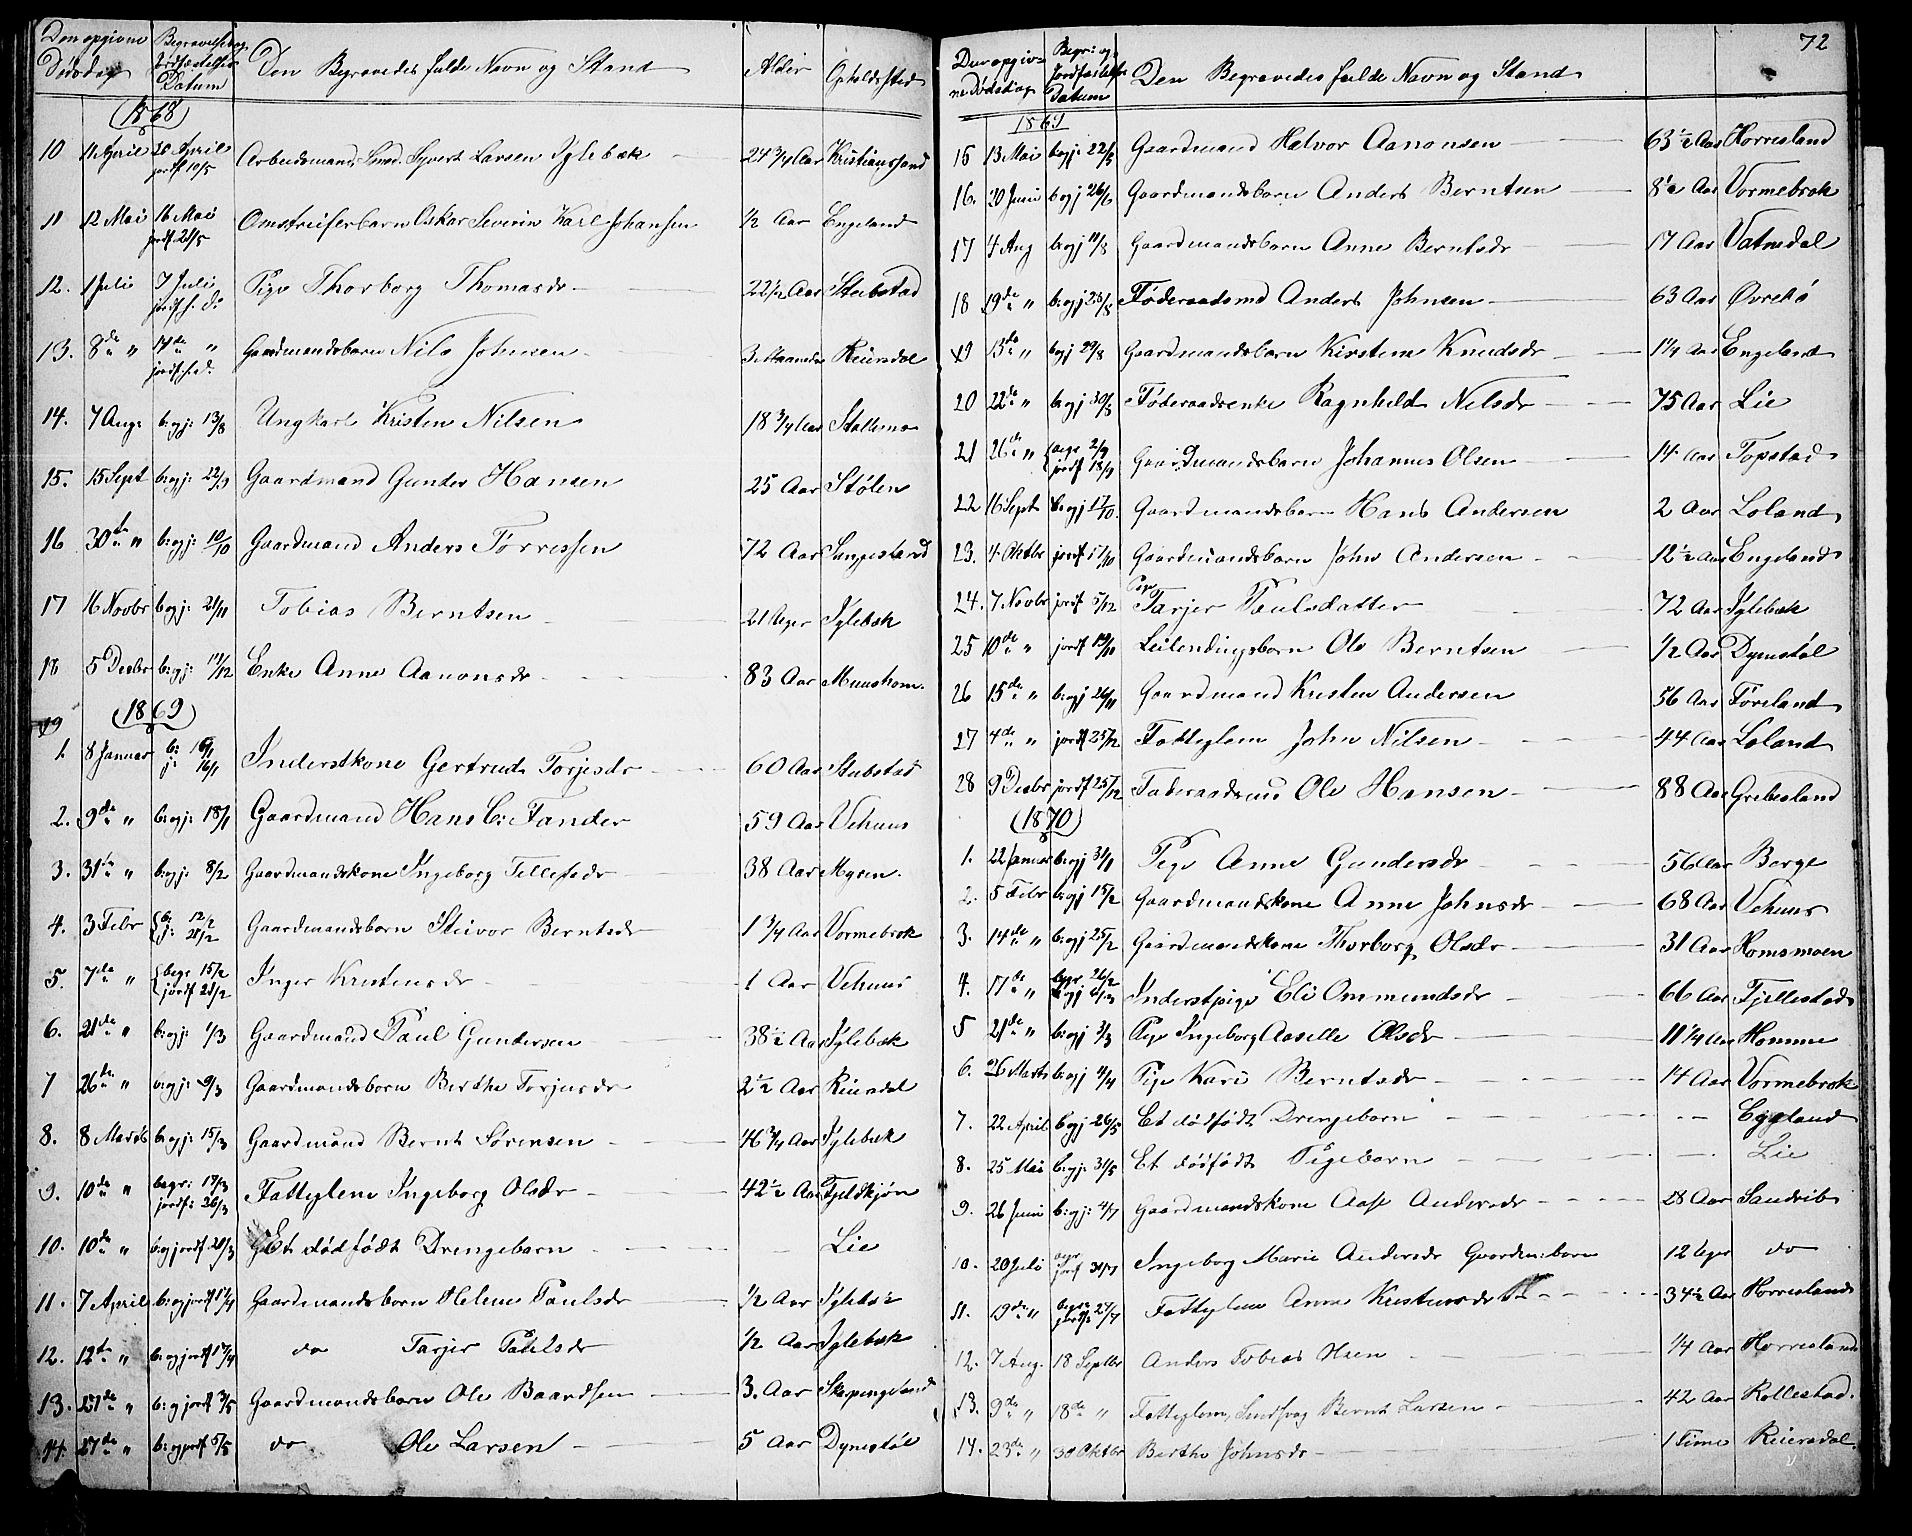 Den opgivne Dødsdag Begravelses og Jordfæstelses Datum Den Begravedes fulde Navn og Stand Alder Opholdssted
1868
10 11 April 20 April jordf 10/5 Arbeidsmand, Smed. Syvert Larsen Iglebæk 24 3/4 Aar Kristianssand
11 12 Mai 16 Mai jordf. 21/5 Omstreiferbarn Oskar Severin Karl Johansen 1/2 Aar Engeland
12. 1 Juli 7 Juli jordf. s. d. Pige Thorborg Thomasdr 22 1/2 Aar Stubstad
13. 8de " 14de " Gaardmandsbarn Nils Johnsen 3 Maaneder Reiersdal
14. 7 Aug: b: og j: 13/8 Ungkarl Kristen Nilsen 18 3/4 Aar Stallemo
15. 15 Sept b: og j: 22/9 Gaardmand Gunder Hansen 25 Aar Stølen
16 30te " b: og j: 10/10 Gaardmand Anders Torressen 72 Aar Sangesland
17 16 Novbr b: og j: 21/11 Tobias Berntsen 21 Uger Iglebæk
18 5 Decbr b: og j: 14/12 Enke Anne Aanonsdr 83 Aar
1869
1. 8 Januar b: j: 16/1 Inderstkone Gertrud Torjesdr 60 Aar Stubstad
2. 9de " b: og j: 18/1 Gaardmand Hans C: Fander 59 Aar Vehuus
3. 31te " b: og j: 8/2 Gaardmandskone Ingeborg Tellefsdr 38 Aar Mysen.
4. 3 Febr b: 12/2 j: 21/2 Gaardmandsbarn Steivor Berntsdr 1 3/4 Aar Vormebrok
5. 7de " begr 15/2 jordf 21/2 Inger Kristensdr 1 Aar Vehuus
6. 21de " b: og j: 1/3 Gaardmand Paul Gundersen 38 1/2 Aar Iglebæk
7 26de " b: og j: 9/3 Gaardmandsbarn Berthe Torjusdr 2 1/2 Aar Reiersdal
8. 8 Marts b: og j: 15/3 Gaardmand Bernt Sørensen 46 3/4 Aar Iglebæk
9. 10de " begr: 17/3 jordf: 26/3 Fattiglem Ingeborg Olsdr 42 1/2 Aar Fjeldkjøn
10. 10de " b: og jordf 21/3 Et dødfødt Drengebarn Lie
11. 7 April b: og jordf 17/4 Gaardmandsbarn Helene Paulsdr 1/2 Aar Iglebæk
12. 12te " b: og jordf 17/4 do Tarjer Paulsdr 1/2 Aar Iglebæk
13. 21de " b: og jordf 3/5 Gaardmandsbarn Ole Baardsen 3. Aar Skepingeland
14. 27de " b: og jordf 5/5 do Ole Larsen 5 Aar Dynestøl
72
Den opgivne Dødsdag Begr: og Jordfæstelses Datum Den Begravedes fulde Navn og Stand
1869
15 13 Mai b: og j: 22/5 Gaardmand Halvor Aanonsen 63 1/2 Aar Horresland
16. 20 Juni b: og j 26/6 Gaardmandsbarn Anders Berntsen 8 1/2 Aar Vormebrok
17 4 Aug b: og j 11/8 Gaardmandsbarn Anne Berntsdr 17 Aar Vatnedal
18 19de " b: og j 28/8 Føderaadsmd Anders Johnsen 63 Aar Øvrebø
19 13de " b: og j 29/8 Gaardmandsbarn Kirstene Knudsdr 1 1/4 Aar Engeland
20 22de " b: og j 30/8 Føderaadsenke Ragnhild Nilsdr 75 Aar Lie
21 26de " begr 2/9 jordf 13/9 Gaardmandsbarn Johannes Olsen 14 Aar Topstad
22 16 Sept b: og j 17/10. Gaardmandsbarn Hans Andersen 2 Aar Loland
23. 4 Oktbr jordf 17/10 Gaardmandsbarn John Andersen 12 1/2 Aar Engeland
24. 7 Novbr jordf 5/12 Pige Tarjer Paulsdatter 72 Aar Iglebæk
25 10de " jordf 19/11 Leilendingsbarn Ole Berntsen 1/2 Aar Dynestøl
26 15de " b: og j 26/11 Gaardmand Kristen Andersen 56 Aar Føreland
27 4de " jordf 25/12 Fattiglem John Nilsen 44 Aar Loland
28 9 Decbr jordf 25/12 Føderaadsmd Ole Hansen 88 Aar Grebesland
1870
1. 22 Januar b: og j 31/1 Pige Anne Gundersdr 56 Aar Berge
2. 5 Febr b: og j 15/2 Gaardmandskone Anne Johnsdr 68 Aar Vehuus
3. 14de " b: og j 25/2 Gaardmandskone Thorborg Olsdr 31 Aar Homsmoen
4. 17de " begr 26/2 Inderstpige Eli Ommundsdr 66 Aar Fjellestad
5 21de " b: og j 3/3 Pige Ingeborg Aaselle Olsdr 11 1/4 Aar Homme
6. 26 Marts b: og j 4/4 Pige Kari Berntsdr 14 Aar Vormebrok
7. 22 April b: og j 26/5 Et dødfødt Drengebarn Eggland
8. 25 Mai b: og j: 31/5 Et dødfødt Pigebarn Lie
9. 26 Juni b: og j: 4/7 Gaardmandskone Aase Andersdr 28 Aar Sandrib
10. 20 Juli begr jordf 31/7 Ingeborg Marie Andersdr Gaardm: barn 12 Uger do
11. 19de " begr: jordf: 27/7 Fattiglem Anne Kristensdr 34 1/2 Aar Horresland
12. 7 Aug. 18 Septbr Anders Tobias Olsen 1/4 Aar Horresland
13. 9de " 18de " Fattiglem, Sindsvag Bernt Larsen 42 Aar Rollestad.
14. 23de " 30 Oktbr Berthe Johnsdr 1 Time Reiersdal.